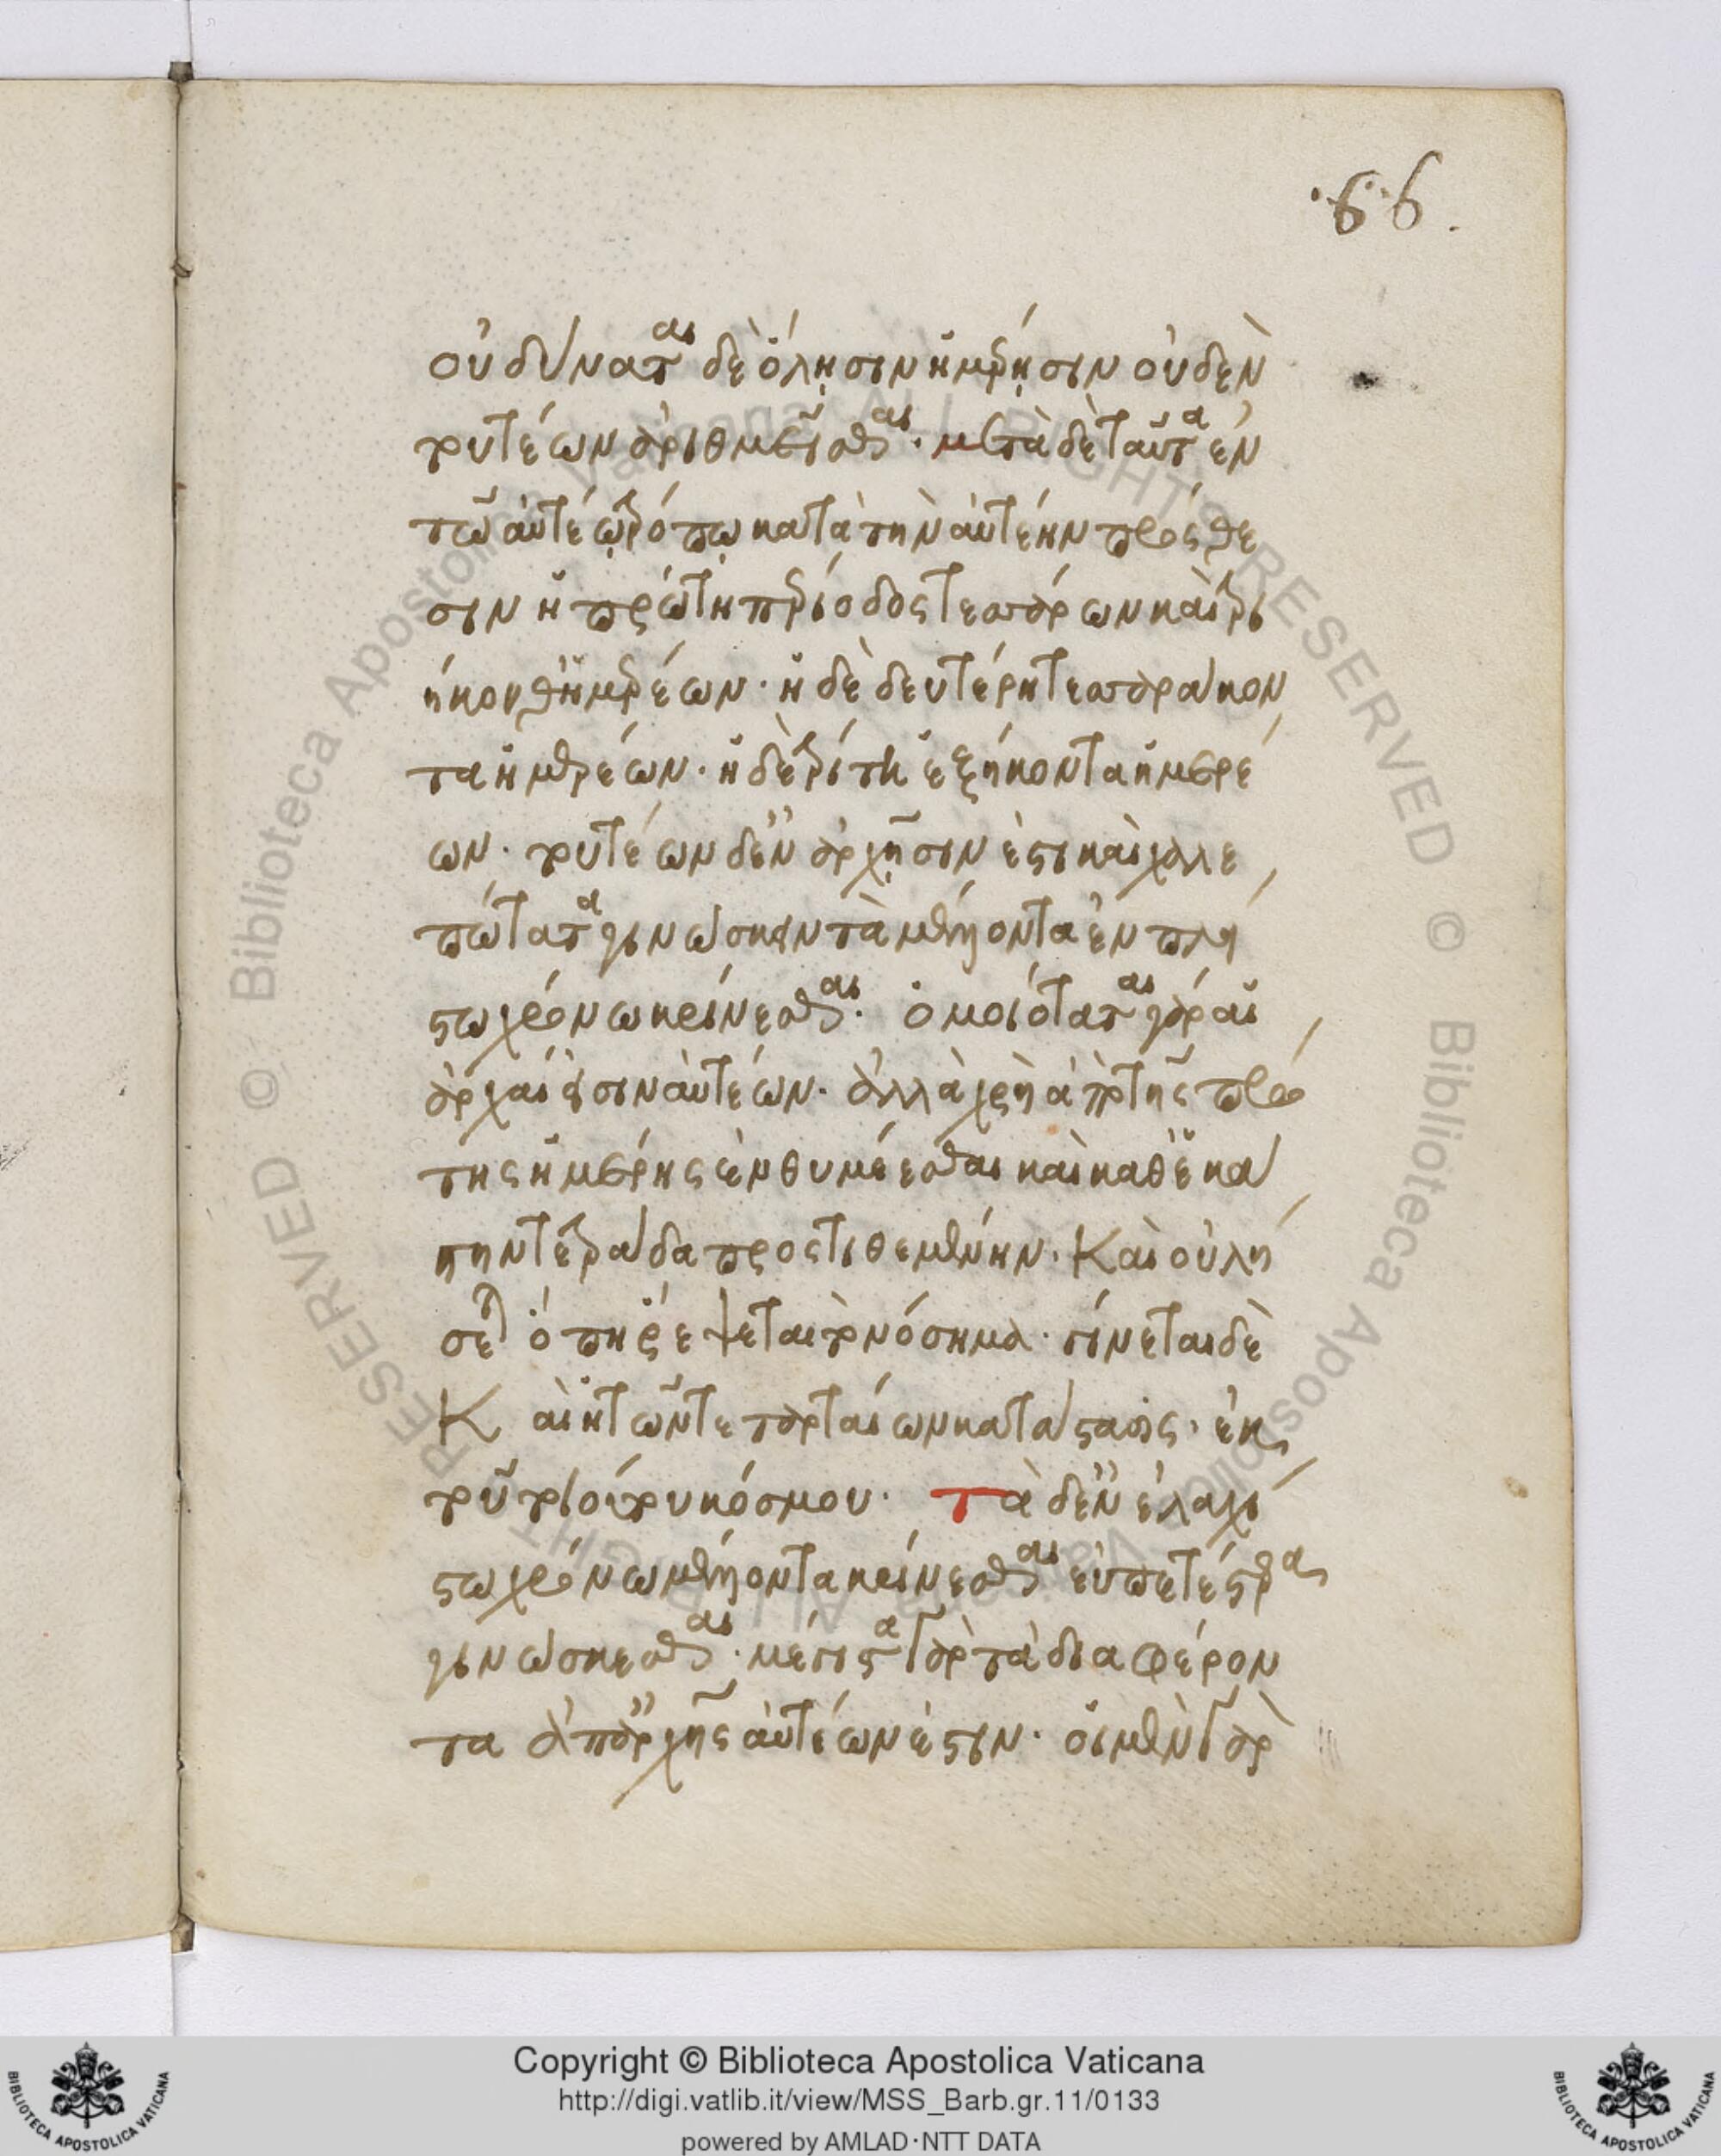 ·66.
οὐ δύναται δὲ ὅλῃσιν ἡμέρῃσιν οὐδὲν
τουτέων ἀριθμεῖσθαι· μετὰ δὲ ταῦτα ἐν
τῶ αὐτέω τρόπω κατὰ τὴν αὐτέην πρόσθε
σιν ἡ πρώτη περίοδος τεσσάρων καὶ τρι
ήκονθ ἡμερέων· ἡ δὲ δευτέρη τεσσαράκον
τα ἡμερέων· ἡ δὲ τρίτη ἑξήκοντα ἡμερέ
ων· τουτέων δ' ἐν ἀρχῇσιν ἐστι καὶ χαλε
πώτατα γινώσκειν τὰ μέλλοντα ἐν πλεί
στω χρόνω κρίνεσθαι· ὁμοιόταται γὰρ αἱ
ἀρχαί εἰσιν αὐτέων· ἀλλὰ χρὴ ἀπὸ τῆς πρώ
της ἡμέρης ἐνθυμέεσθαι καὶ καθ' ἑκά
στην τετράδα προστιθεμένην· Καὶ οὐ λή
σει ὅπη τρέψεται τὸ νόσημα· γίνεται δὲ
Καὶ ἡ τῶν τεταρταίων κατάστασις· ἐκ
τοῦ τοιούτου κόσμου· τὰ δ' ἐν ἐλαχί
στω χρόνω μέλλοντα κρίνεσθαι εὐπετέστερα
γινώσκεσθαι· μέγιστα γὰρ τὰ διαφέρον
τα ἀπ' ἀρχῆς αὐτέων ἐστιν· οἱ μὲν γὰρ
Copyright © Biblioteca Apostolica Vaticana
http://digi.vatlib.it/view/MSS_Barb.gr.11/0133
powered by AMLAD·NTT DATA